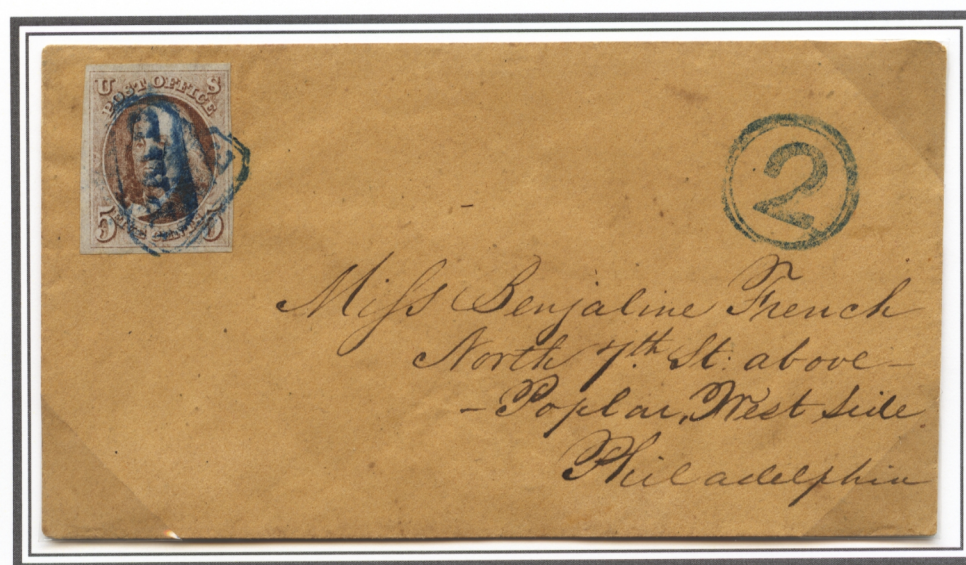 U S
POST OFFICE
PAID
5 FIVE CENTS 5
2
Miss Benjaline French
North 7th St. above –
– Poplar, West side.
Philadelphia